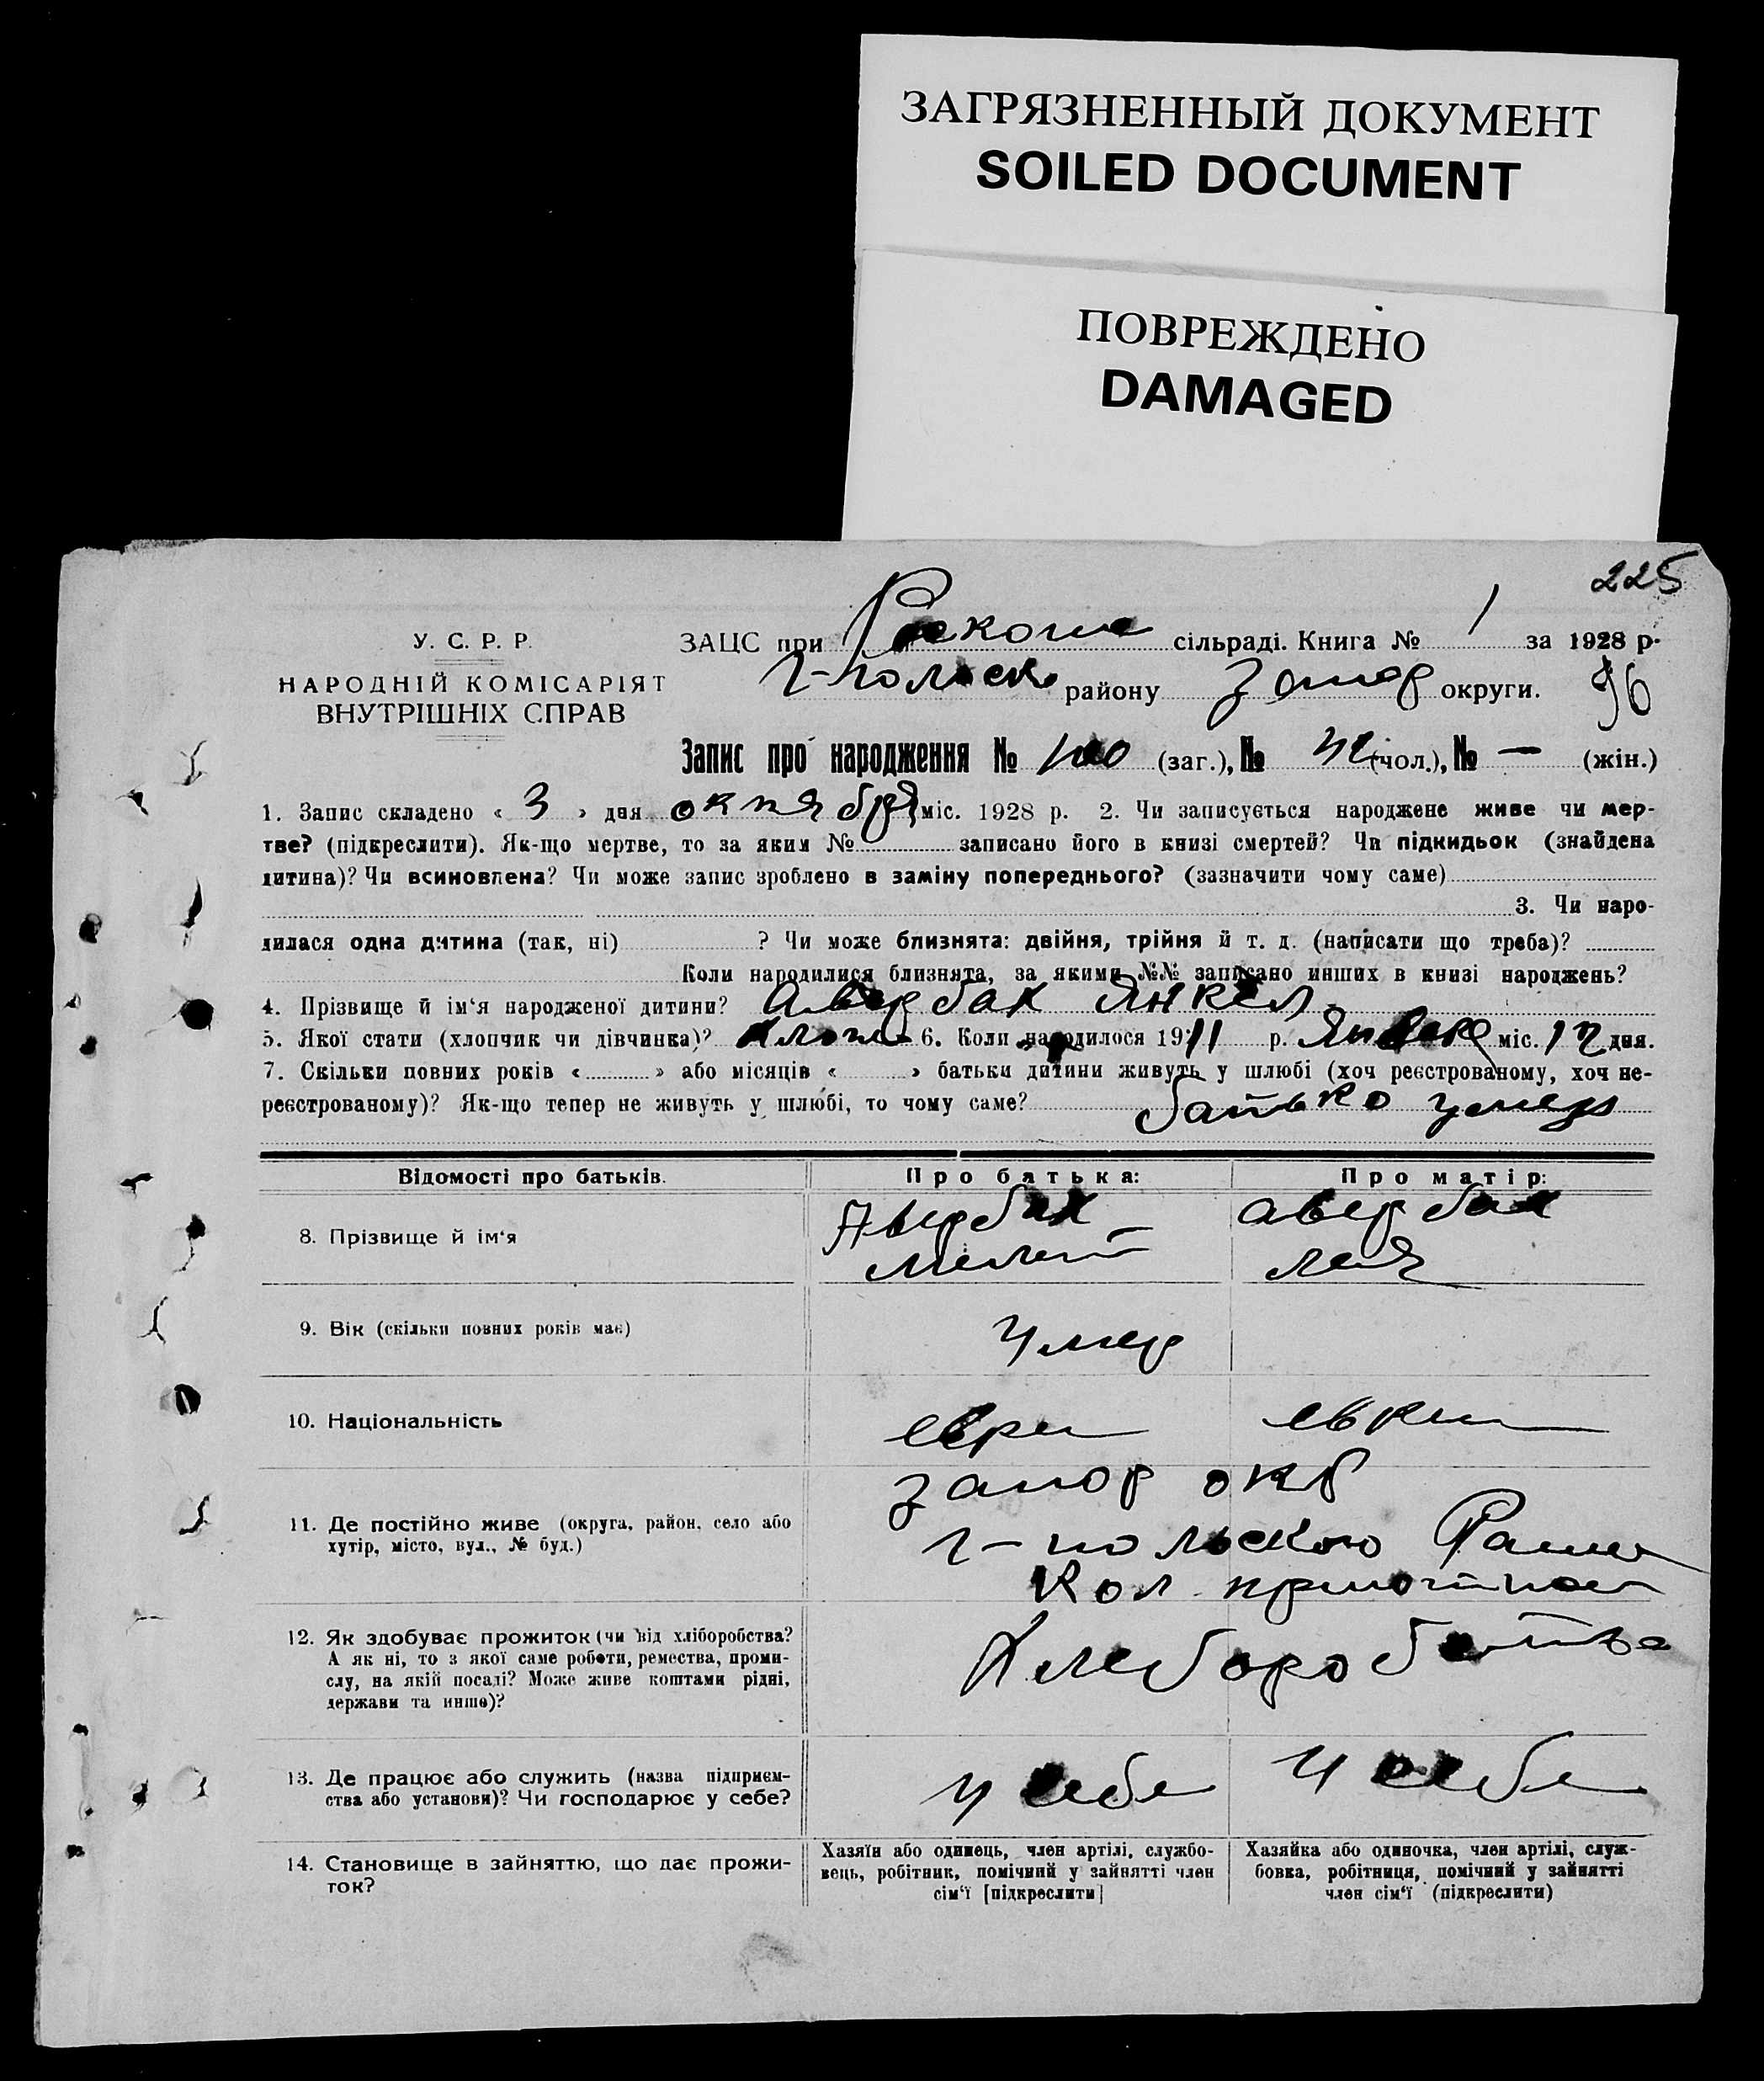 ЗАГРЯЗНЕННЫЙ ДОКУМЕНТ
SOILED DOCUMENT
ПОВРЕЖДЕНО
DAMAGED
225
У. С. Р. Р.
НАРОДНІЙ КОМІСАРІЯТ
ВНУТРІШНІХ СПРАВ
ЗАЦС при сільраді. Книга № 1 за 1928 р.
Г-польск району Запор округи. 96
Запис про народження № 100 (заг.), № (чол.), № — (жін.)
1. Запис складено « 3 » дня октября міс. 1928 р. 2. Чи записується народжене живе чи мер-
тве? (підкреслити). Як-що мертве, то за яким № записано його в книзі смертей? Чи підкидьок (знайдена
дитина)? Чи всиновлена? Чи може запис зроблено в заміну попереднього? (зазначити чому саме)
3. Чи наро-
дилася одна дитина (так, ні) ? Чи може близнята: двійня, трійня й т. д. (написати що треба)?
Коли народилися близнята, за якими №№ записано инших в книзі народжень?
4. Прізвище й ім'я народженої дитини? Авербах Янкел
5. Якої стати (хлопчик чи дівчинка)? 6. Коли народилося 1911 р. Январ міс. 12 дня.
7. Скільки повних років « » або місяців « » батьки дитини живуть у шлюбі (хоч реєстрованому, хоч не-
реєстрованому)? Як-що тепер не живуть у шлюбі, то чому саме? батько умер
Відомості про батьків. Про батька: Про матір:
8. Прізвище й ім'я Авербах Авербах
Лея
9. Вік (скільки повних років має) Умер
10. Національність еврей
11. Де постійно живе (округа, район, село або
хутір, місто, вул., № буд.)
Запор окр
Г-польского
Кол
12. Як здобуває прожиток (чи від хліборобства?
А як ні, то з якої саме роботи, ремества, проми-
слу, на якій посаді? Може живе коштами рідні,
держави та инше)?
Хлеборобство
13. Де працює або служить (назва підприєм-
ства або установи)? Чи господарює у себе?
У себе У себе
14. Становище в зайняттю, що дає прожи-
ток?
Хазяїн або одинець, член артілі, службо-
вець, робітник, помічний у зайнятті член
сім'ї [підкреслити]
Хазяйка або одиночка, член артілі, служ-
бовка, робітниця, помічний у зайнятті
член сім'ї (підкреслити)